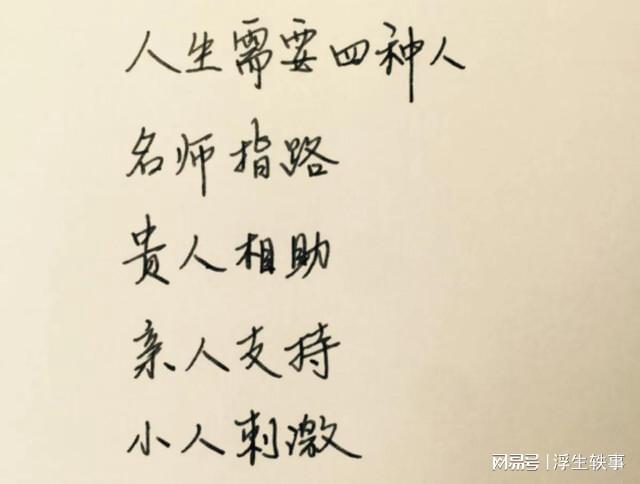 人生需要四种人
名师指路
贵人相助
亲人支持
小人刺激
网易号 | 浮生轶事